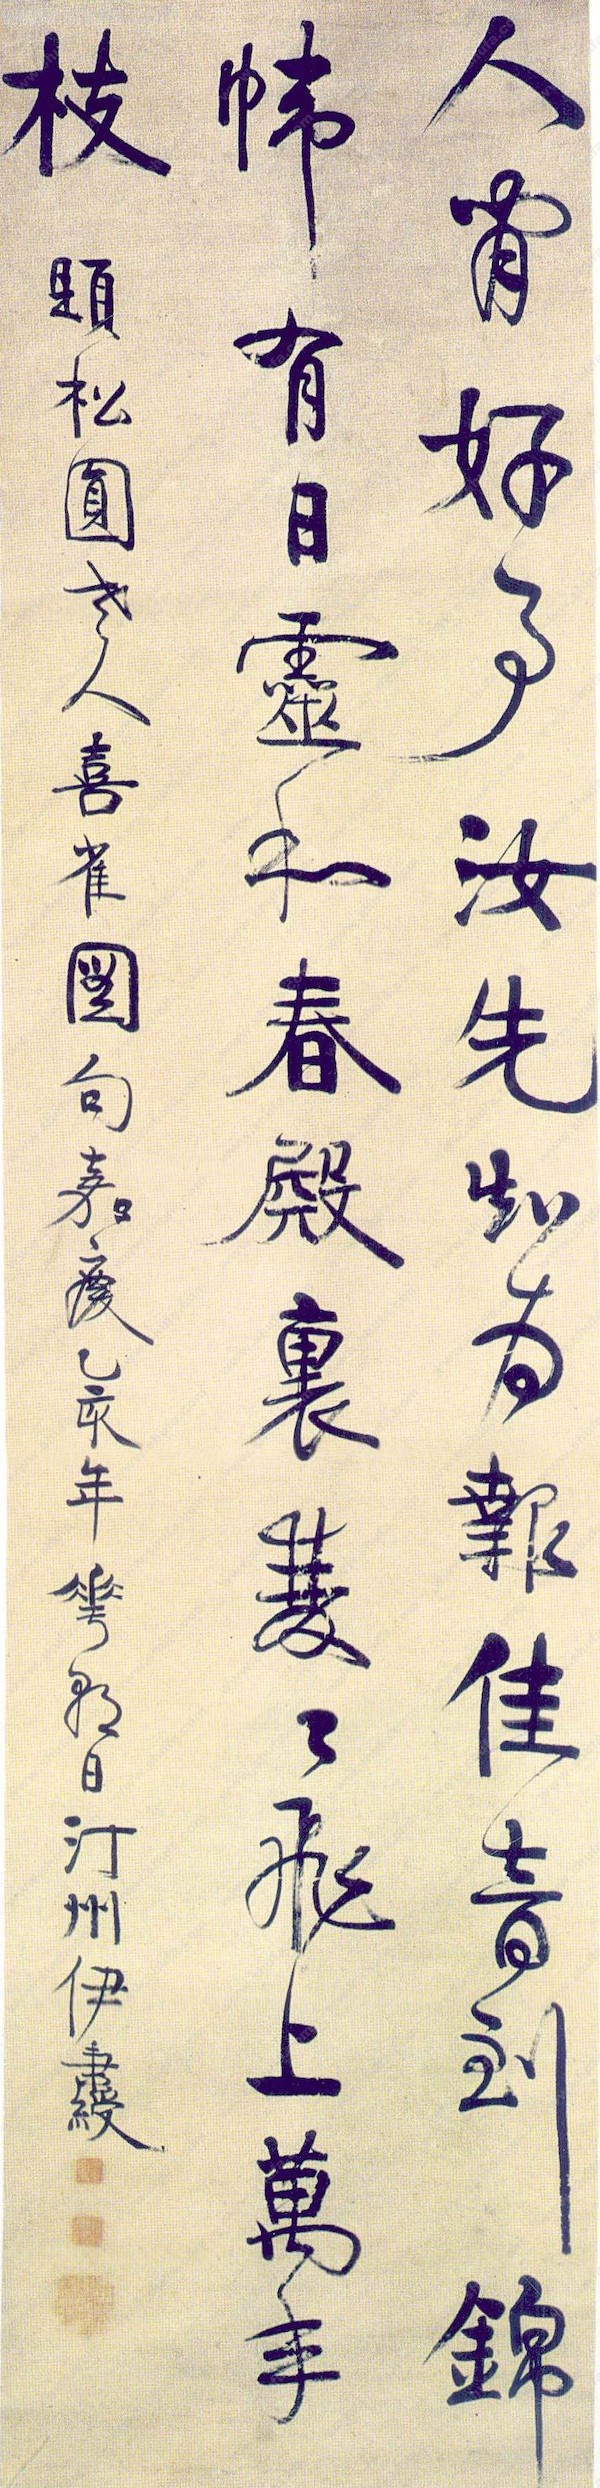 人間好事汝先知為報佳音到錦
幃有日靈和春殿裏雙〻飛上萬年
枝 題松圓老人喜雀圖句嘉慶乙亥年華朝日汀州伊秉綬